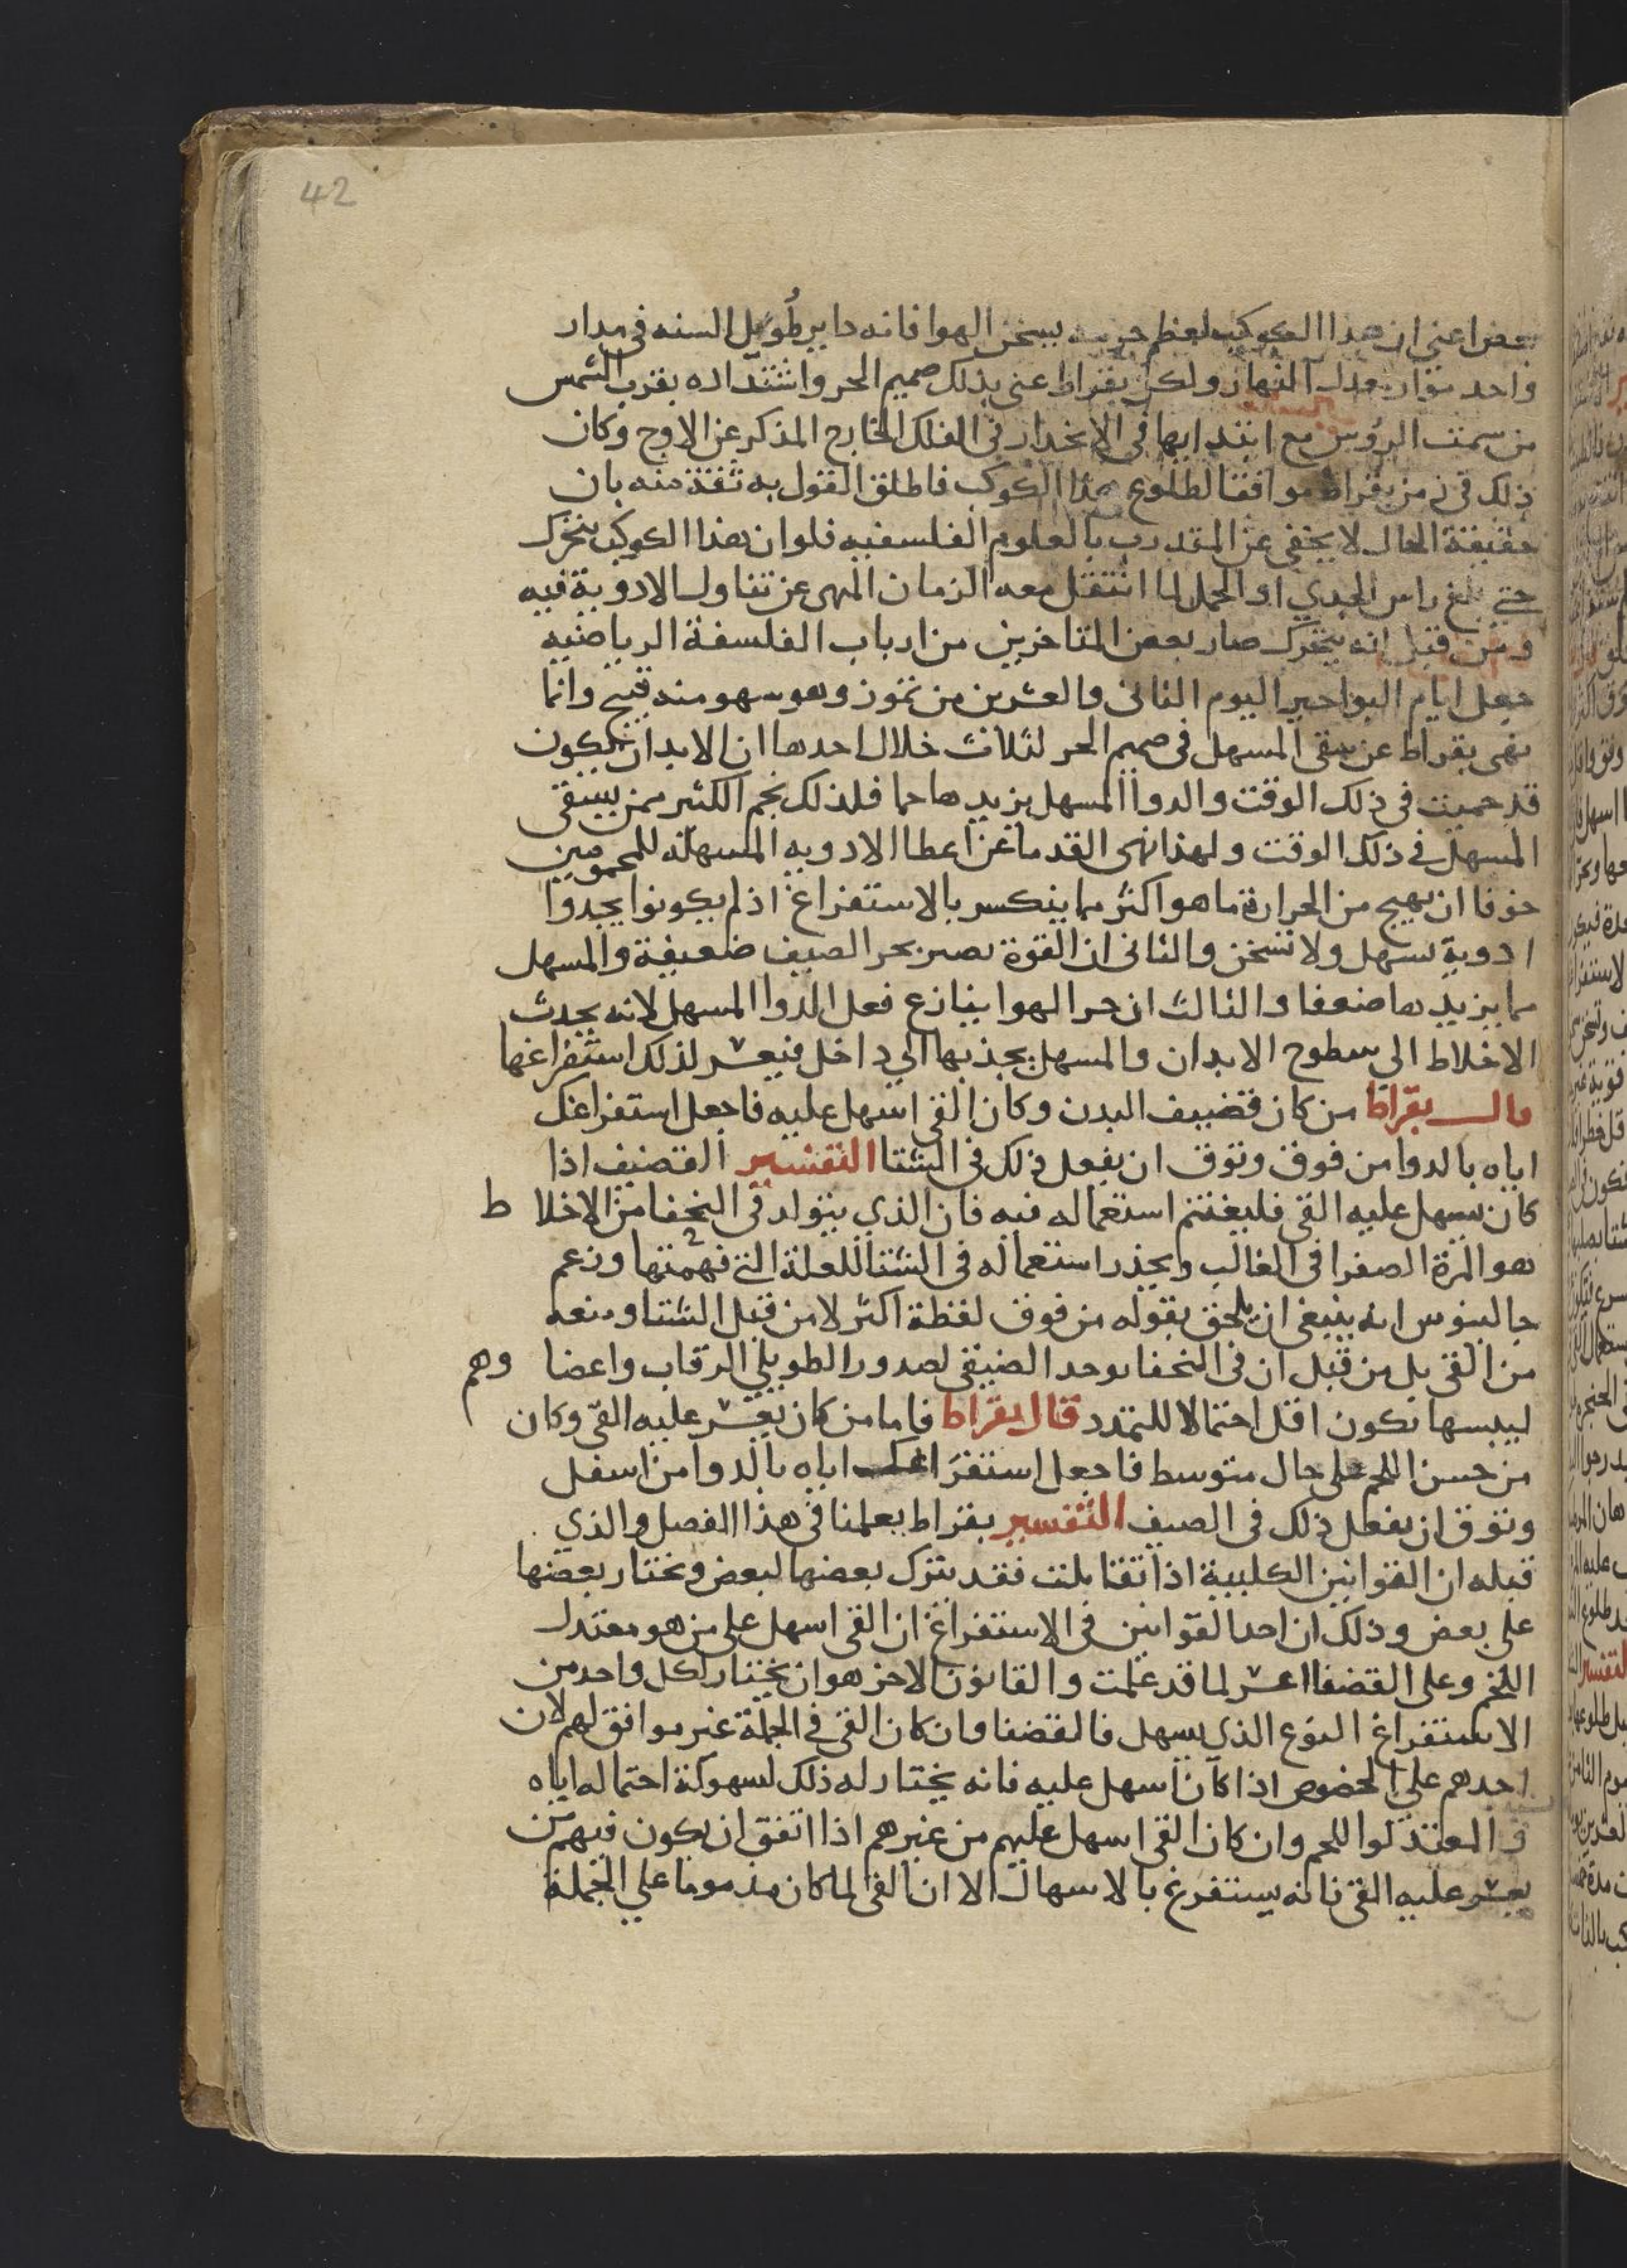 42
بعض اعني ان هذا الكوكب لعظم جرمه يسخن الهوا فانه داير طول السنه في مدار
واحد مواز لمعدل النهار ولكن بقراط عني بذلك صميم الحر واشتداده بقرب الشمس
من سمت الروس مع ابتدايها في الانحدار في الفلك الخارج المذكر عن الاوج وكان
ذلك في زمن بقراط موافقا لطلوع هذا الكوكب فاطلق القول به ثقة منه بان
حقيقة الحال لا يخفي عن المتدرب بالعلوم الفلسفيه فلو ان هذا الكوكب يتحرك
حتي بلغ راس الجدي او الحمل لما انتقل معه الزمان المهي عن تناول الادوية فيه
ومن قبل انه يتحرك صار بعض المتاخرين من ارباب الفلسفة الرياضيه
جعل ايام البواحير اليوم الثاني والعشرين من تموز وهو سهو منه قبيح وانما
نهي بقراط عن سقي المسهل في صميم الحر لثلاث خلال احدها ان الابدان تكون
قد حميت في ذلك الوقت والدوا المسهل يزيدها حما فلذلك يحم الكثير ممن يسقي
المسهل في ذلك الوقت ولهذا نهي القدما عن اعطا الادويه المسهله للمحمومين
خوفا ان يهيج من الحرارة ما هو اكثر مما ينكسر بالاستفراغ اذ لم يكونوا يجدوا
ادوية تسهل ولا تسخن والثاني ان القوة تصير بحر الصيف ضعيفة والمسهل
مما يزيدها ضعفا والثالث ان حر الهوا ينازع فعل الدوا المسهل لانه يحدث
الاخلاط الي سطوح الابدان والمسهل يجذبها الي داخل فيعسر لذلك استفراغها
قال بقراط من كان قضيف البدن وكان القي اسهل عليه فاجعل استفراغك
اياه بالدوا من فوق وتوق ان يفعل ذلك في الشتا التفسير القضيف اذا
كان يسهل عليه القي فليغتنم استعماله فيه فان الذي يتولد في النحفا من الاخلا ط
هو المرة الصفرا في الغالب ويحذر استعماله في الشتا للعلة التي فهمتها وزعم
جالينوس انه ينبغي ان يلحق بقوله من فوق لفظة اكثر لا من قبل الشتا ومنعه
من القي بل من قبل ان في النحفا يوجد الضيقي لصدور الطويلي الرقاب واعضا وهم
ليبسها تكون اقل احتمالا للتمدد قال بقراط فاما من كان يعسر عليه القي وكان
من حسن اللحم علي حال متوسط فاجعل استفراغك اياه بالدوا من اسفل
وتوق ان يفعل ذلك في الصيف التفسير بقراط يعلمنا في هذا الفصل والذي
قبله ان القوانين الكلية اذا تقابلت فقد يترك بعضها لبعض ونختار بعضها
علي بعض وذلك ان احد القوانين في الاستفراغ ان القي اسهل علي من هو معتدل
اللحم وعلي القضفا اعسر لما قد علمت والقانون الاخر هو ان يختار لكل واحد من
الاستفراغ النوع الذي يسهل فالقضفا وان كان القي في الجملة غير موافق لهم لان
احدهم علي الخصوص اذا كان اسهل عليه فانه يختار له ذلك لسهولة احتماله اياه
والمعتدلوا اللحم وان كان القي اسهل عليهم من غيرهم اذا اتفق ان يكون فيهم من
يعسر عليه القي فانه يستفرغ بالاسهال الا ان القي لما كان مذموما علي الجملة